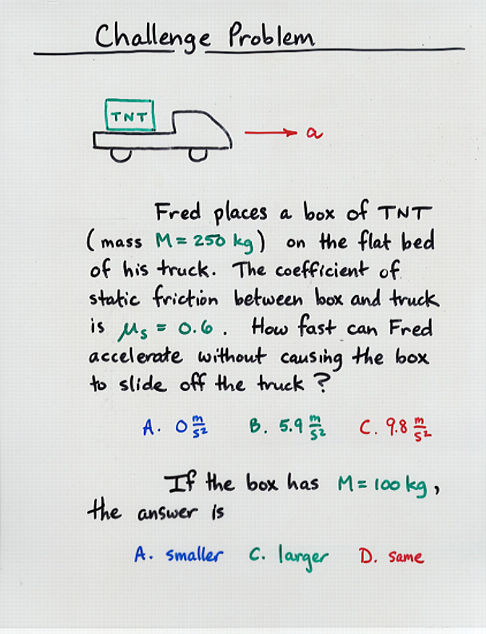 Challenge Problem
TNT
a
Fred places a box of TNT
(mass M = 250 kg) on the flat bed
of his truck. The coefficient of
static friction between box and truck
is μs = 0.6. How fast can Fred
accelerate without causing the box
to slide off the truck?
A. 0 m/s² B. 5.9 m/s² C. 9.8 m/s²
If the box has M = 100 kg,
the answer is
A. smaller C. larger D. same